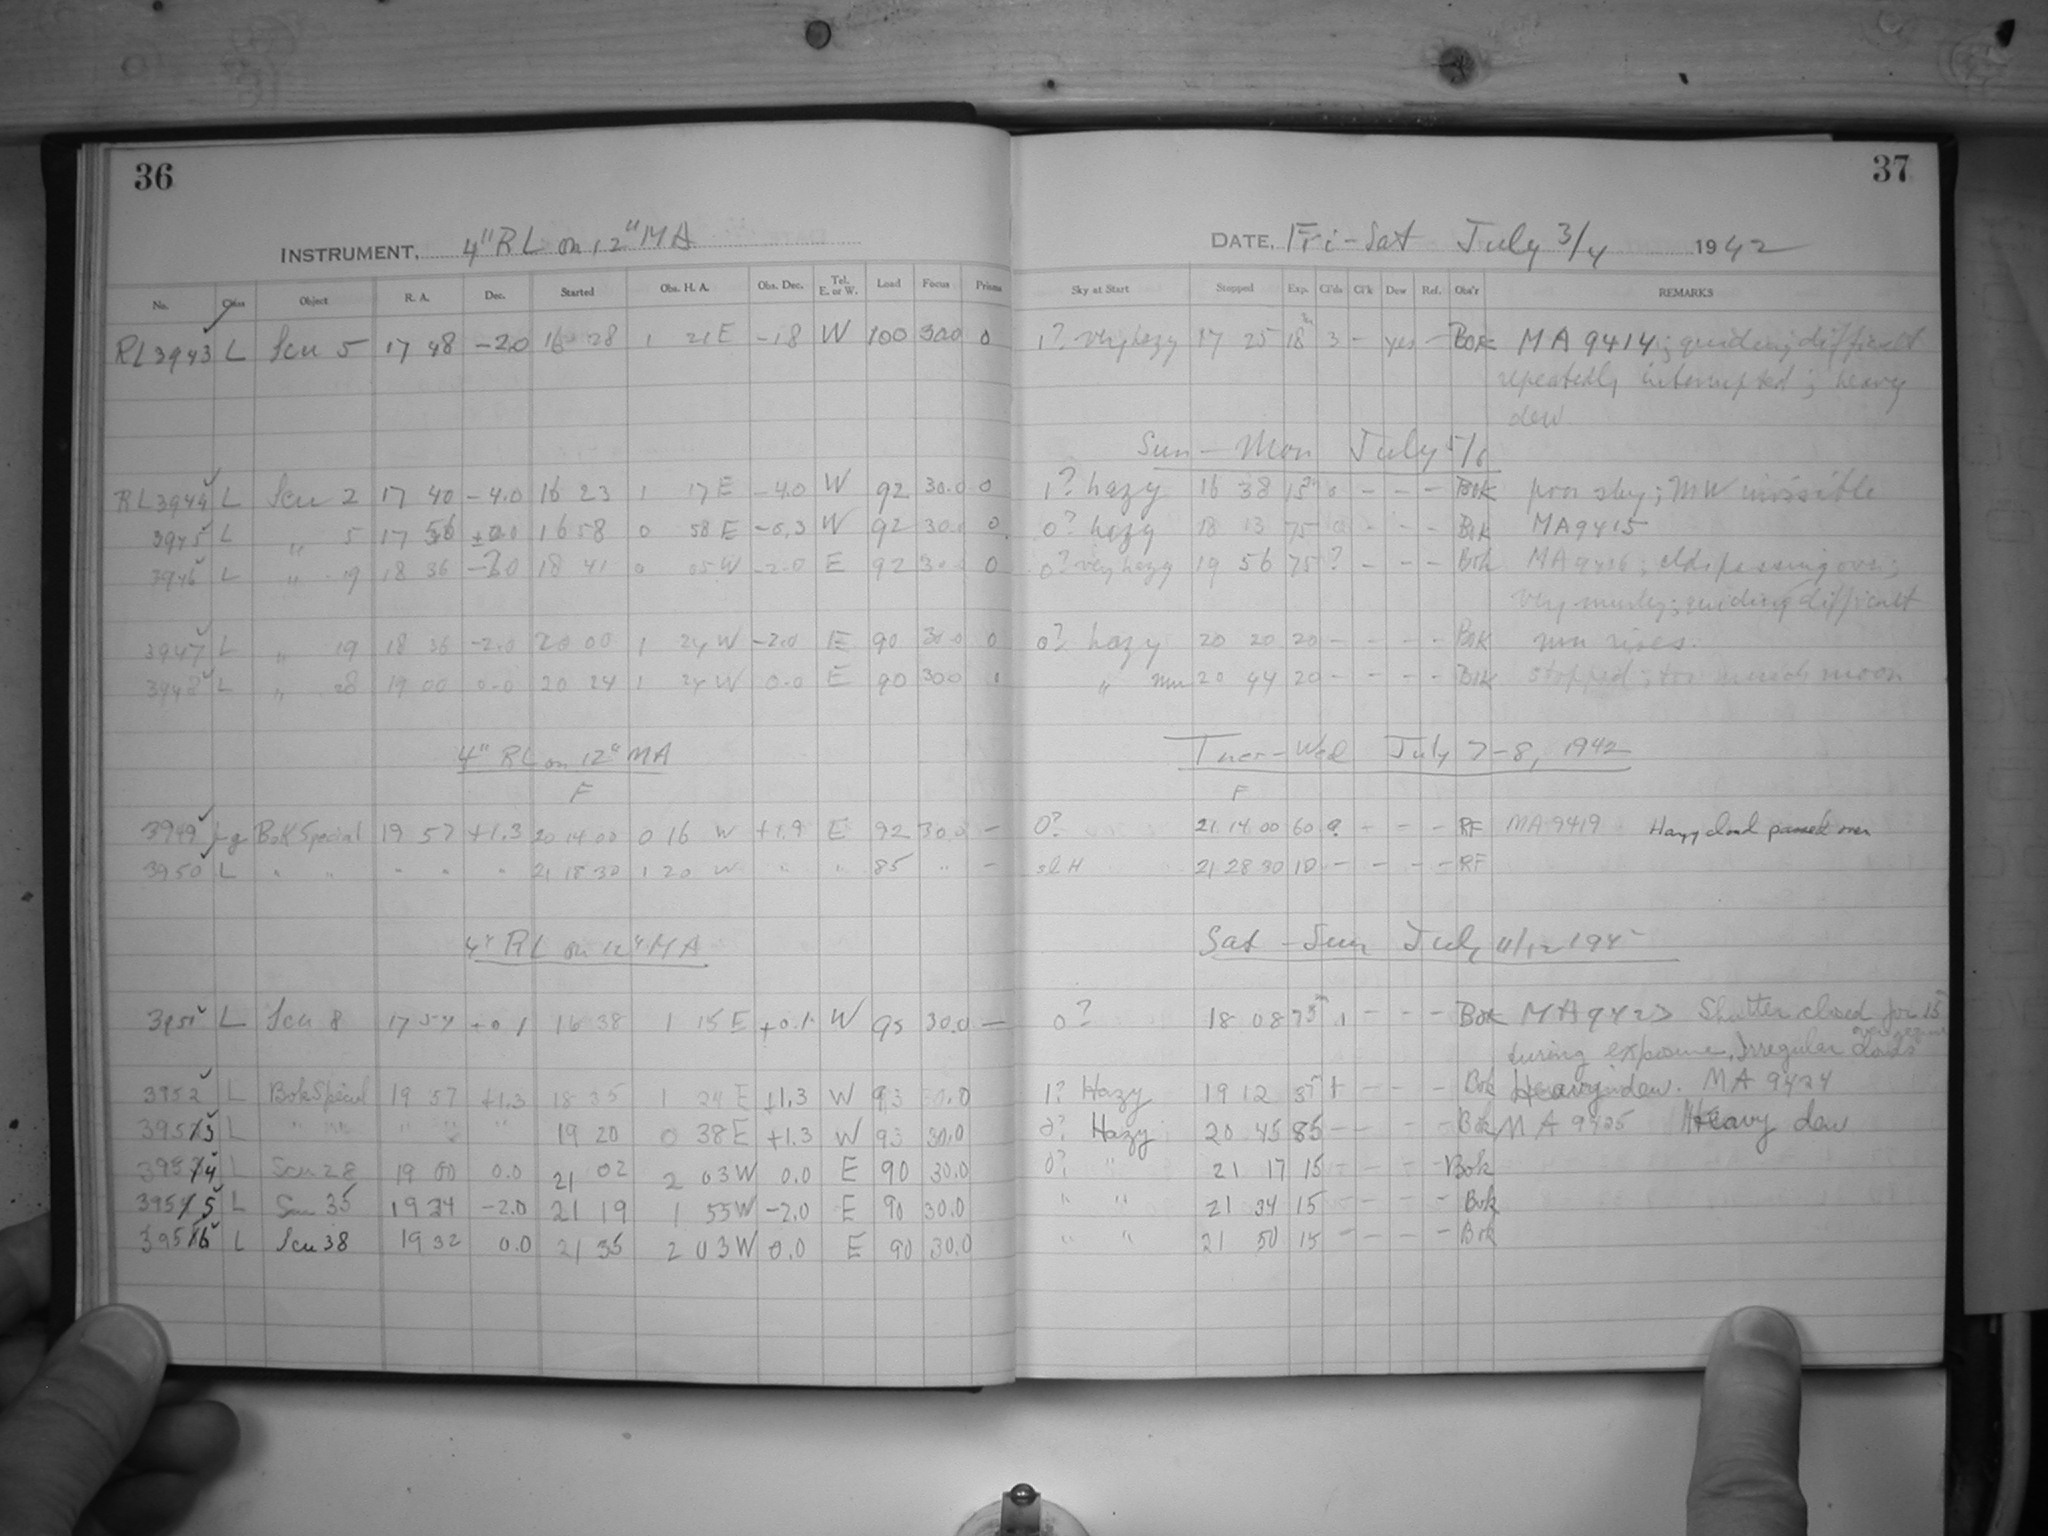 36
37
INSTRUMENT, 4" RL on 12" MA
DATE, Fri - Sat July 3/4 1942
No. Class Object R. A. Dec. Started Obs. H. A. Obs. Dec. Tel. E. or W. Load Focus Prisms Sky at Start Stopped Exp. Cl'ds Cl'k Dew Ref. Obs'r REMARKS
RL 3943 L Scu 5 17 48 -2.0 16 28 1 21 E -1.8 W 100 30.0 0 1? very hazy 17 25 18m 3 - yes - BOK MA 9414; guiding difficult
repeatedly interrupted; heavy
dew
Sun - Mon July 5/6
RL 3944 L Scu 2 17 40 -4.0 16 23 1 17 E -4.0 W 92 30.0 0 1? hazy 16 38 15m 0 - - - BOK poor sky; MW invisible
3945 L " 5 17 56 ±0.0 16 58 0 58 E -0.3 W 92 30.0 0 0? hazy 18 13 75 0 - - - BOK MA 9415
3946 L " 19 18 36 -2.0 18 41 0 05 W -2.0 E 92 30.0 0 0? very hazy 19 56 75 ? - - - Bok MA 9416; clds passing over;
very murky; guiding difficult
3947 L " 19 18 36 -2.0 20 00 1 24 W -2.0 E 90 30.0 0 0? hazy 20 20 20 - - - - BOK mn rises.
3948 L " 28 19 00 0.0 20 24 1 24 W 0.0 E 90 30.0 " mn 20 44 20 - - - - BOK stopped; too much moon
4" RL on 12" MA
Tues - Wed July 7-8, 1942
F
F
3949 L-g Bok Special 19 57 +1.3 20 14 00 0 16 W +1.9 E 92 30.0 - 0? 21 14 00 60 ? - - - RF MA 9419 Hazy cloud passed over
3950 L " " " " " 21 18 30 1 20 W " " 85 " - sl H 21 28 30 10 - - - - RF
4" RL on 12" MA
Sat - Sun July 11/12 194
3951 L Scu 8 17 54 +0.1 16 38 1 15 E +0.1 W 95 30.0 - 0? 18 08 75m 1 - - - Bok MA 942 Shutter closed for 15m
during exposure. Irregular clouds
3952 L Bok Special 19 57 +1.3 18 35 1 24 E +1.3 W 93 30.0 1? Hazy 19 12 37m - - - Bok Heavy dew. MA 9424
3953 L " " " " " 19 20 0 38 E +1.3 W 93 30.0 0? Hazy 20 45 85 - - - - Bok MA 9425 Heavy dew
3954 L Scu 28 19 00 0.0 21 02 2 03 W 0.0 E 90 30.0 0? " 21 17 15 - - - - Bok
3955 L Scu 35 19 24 -2.0 21 19 1 55 W -2.0 E 90 30.0 " " 21 34 15 - - - - Bok
3956 L Scu 38 19 32 0.0 21 35 2 03 W 0.0 E 90 30.0 " " 21 50 15 - - - - Bok